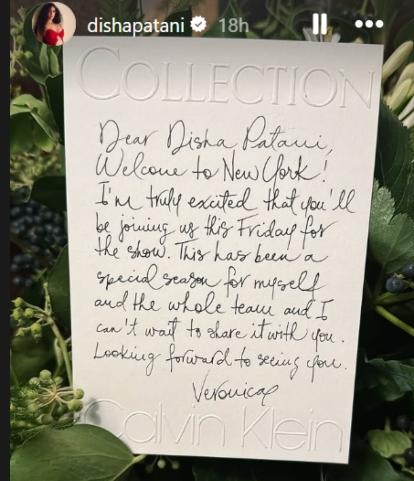 dishapatani 18h
COLLECTION
Dear Disha Patani,
Welcome to New York!
I'm truly excited that you'll
be joining us this Friday for
the show. This has been a
special season for myself
and the whole team and I
can't wait to share it with you.
Looking forward to seeing you.
Veronica
Calvin Klein